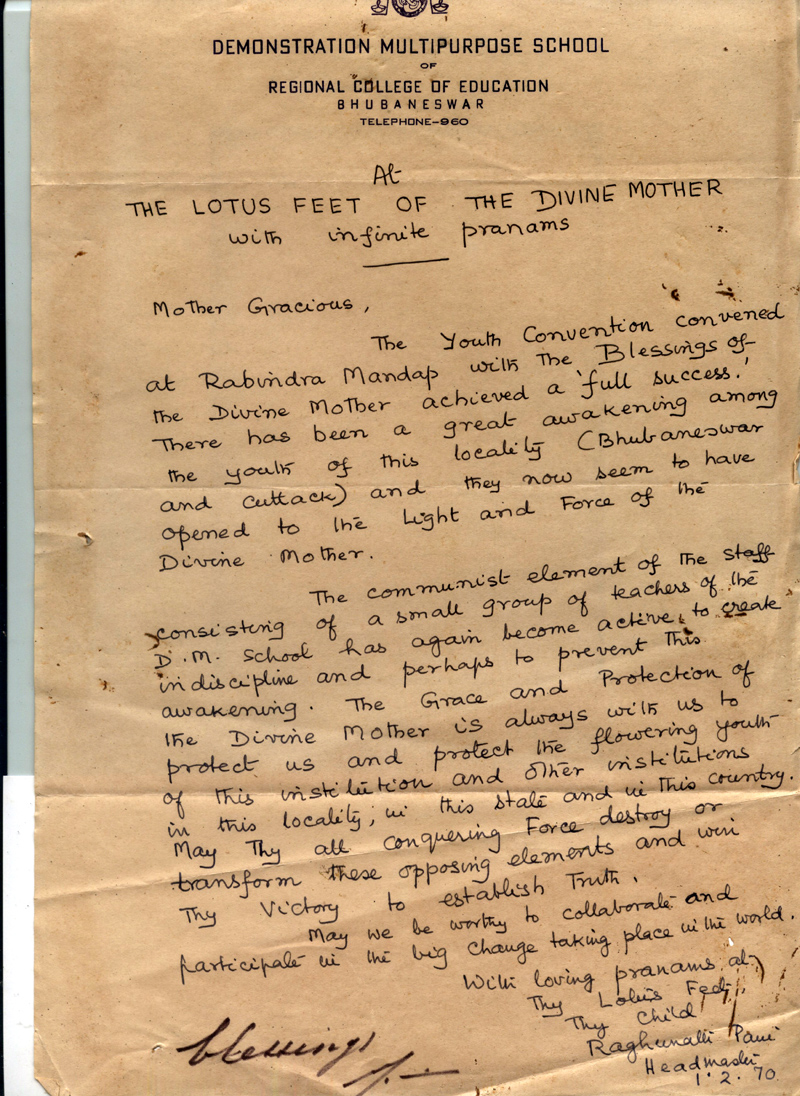 DEMONSTRATION MULTIPURPOSE SCHOOL
OF
REGIONAL COLLEGE OF EDUCATION
BHUBANESWAR
TELEPHONE-960
At
THE LOTUS FEET OF THE DIVINE MOTHER
with infinite pranams
Mother Gracious,
The Youth Convention convened
at Rabindra Mandap with the Blessings of
the Divine Mother achieved a 'full success.'
There has been a great awakening among
the youth of this locality (Bhubaneswar
and Cuttack) and they now seem to have
opened to the Light and Force of the
Divine Mother.
The communist element of the staff
consisting of a small group of teachers of the
D.M. School has again become active to create
indiscipline and perhaps to prevent this
awakening. The Grace and Protection of
the Divine Mother is always with us to
protect us and protect the flowering youth
of this institution and other institutions
in this locality, in this state and in this country.
May Thy all conquering Force destroy or
transform these opposing elements and win
Thy Victory to establish Truth.
May we be worthy to collaborate and
participate in the big change taking place in the world.
With loving pranams at
Thy Lotus Feet,
Thy Child
Raghunath Pani
Headmaster
1.2.70
blessings